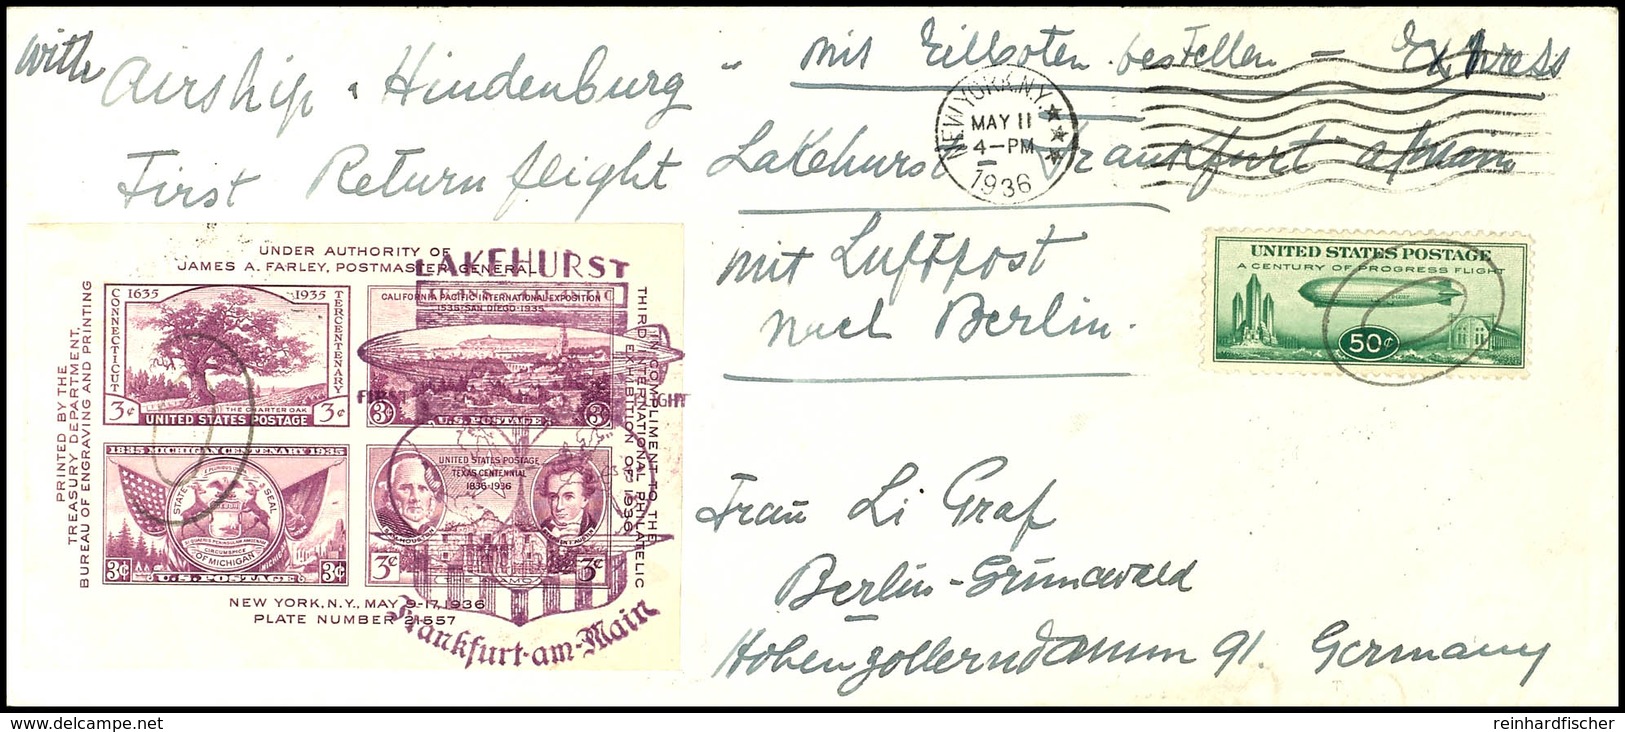 with Airship "Hindenburg" mit Eilboten bestellen - Express
First Return flight Lakehurst - Frankfurt a/Main
mit Luftpost
nach Berlin.
NEW YORK, N.Y.
MAY 11
4-PM
1936
UNITED STATES POSTAGE
A CENTURY OF PROGRESS FLIGHT
50¢
UNDER AUTHORITY OF
JAMES A. FARLEY, POSTMASTER GENERAL
PRINTED BY THE
TREASURY DEPARTMENT,
BUREAU OF ENGRAVING AND PRINTING
IN COMPLIMENT TO THE
THIRD INTERNATIONAL PHILATELIC
EXHIBITION OF 1936
1635 1935
CONNECTICUT
TERCENTENARY
THE CHARTER OAK
3¢ UNITED STATES POSTAGE 3¢
CALIFORNIA PACIFIC INTERNATIONAL EXPOSITION
1535 · SAN DIEGO · 1935
3¢ U.S. POSTAGE 3¢
1835 MICHIGAN CENTENARY 1935
STATE SEAL
OF MICHIGAN
3¢ U.S. POSTAGE 3¢
UNITED STATES POSTAGE
TEXAS CENTENNIAL
1836 · 1936
SAM HOUSTON
STEPHEN F. AUSTIN
3¢ THE ALAMO 3¢
NEW YORK, N.Y., MAY 9-17, 1936
PLATE NUMBER 21557
LAKEHURST
FIRST FLIGHT
Frankfurt-am-Main
Frau Li Graf
Berlin-Grunewald
Hohenzollerndamm 91. Germany
reinhardfischer